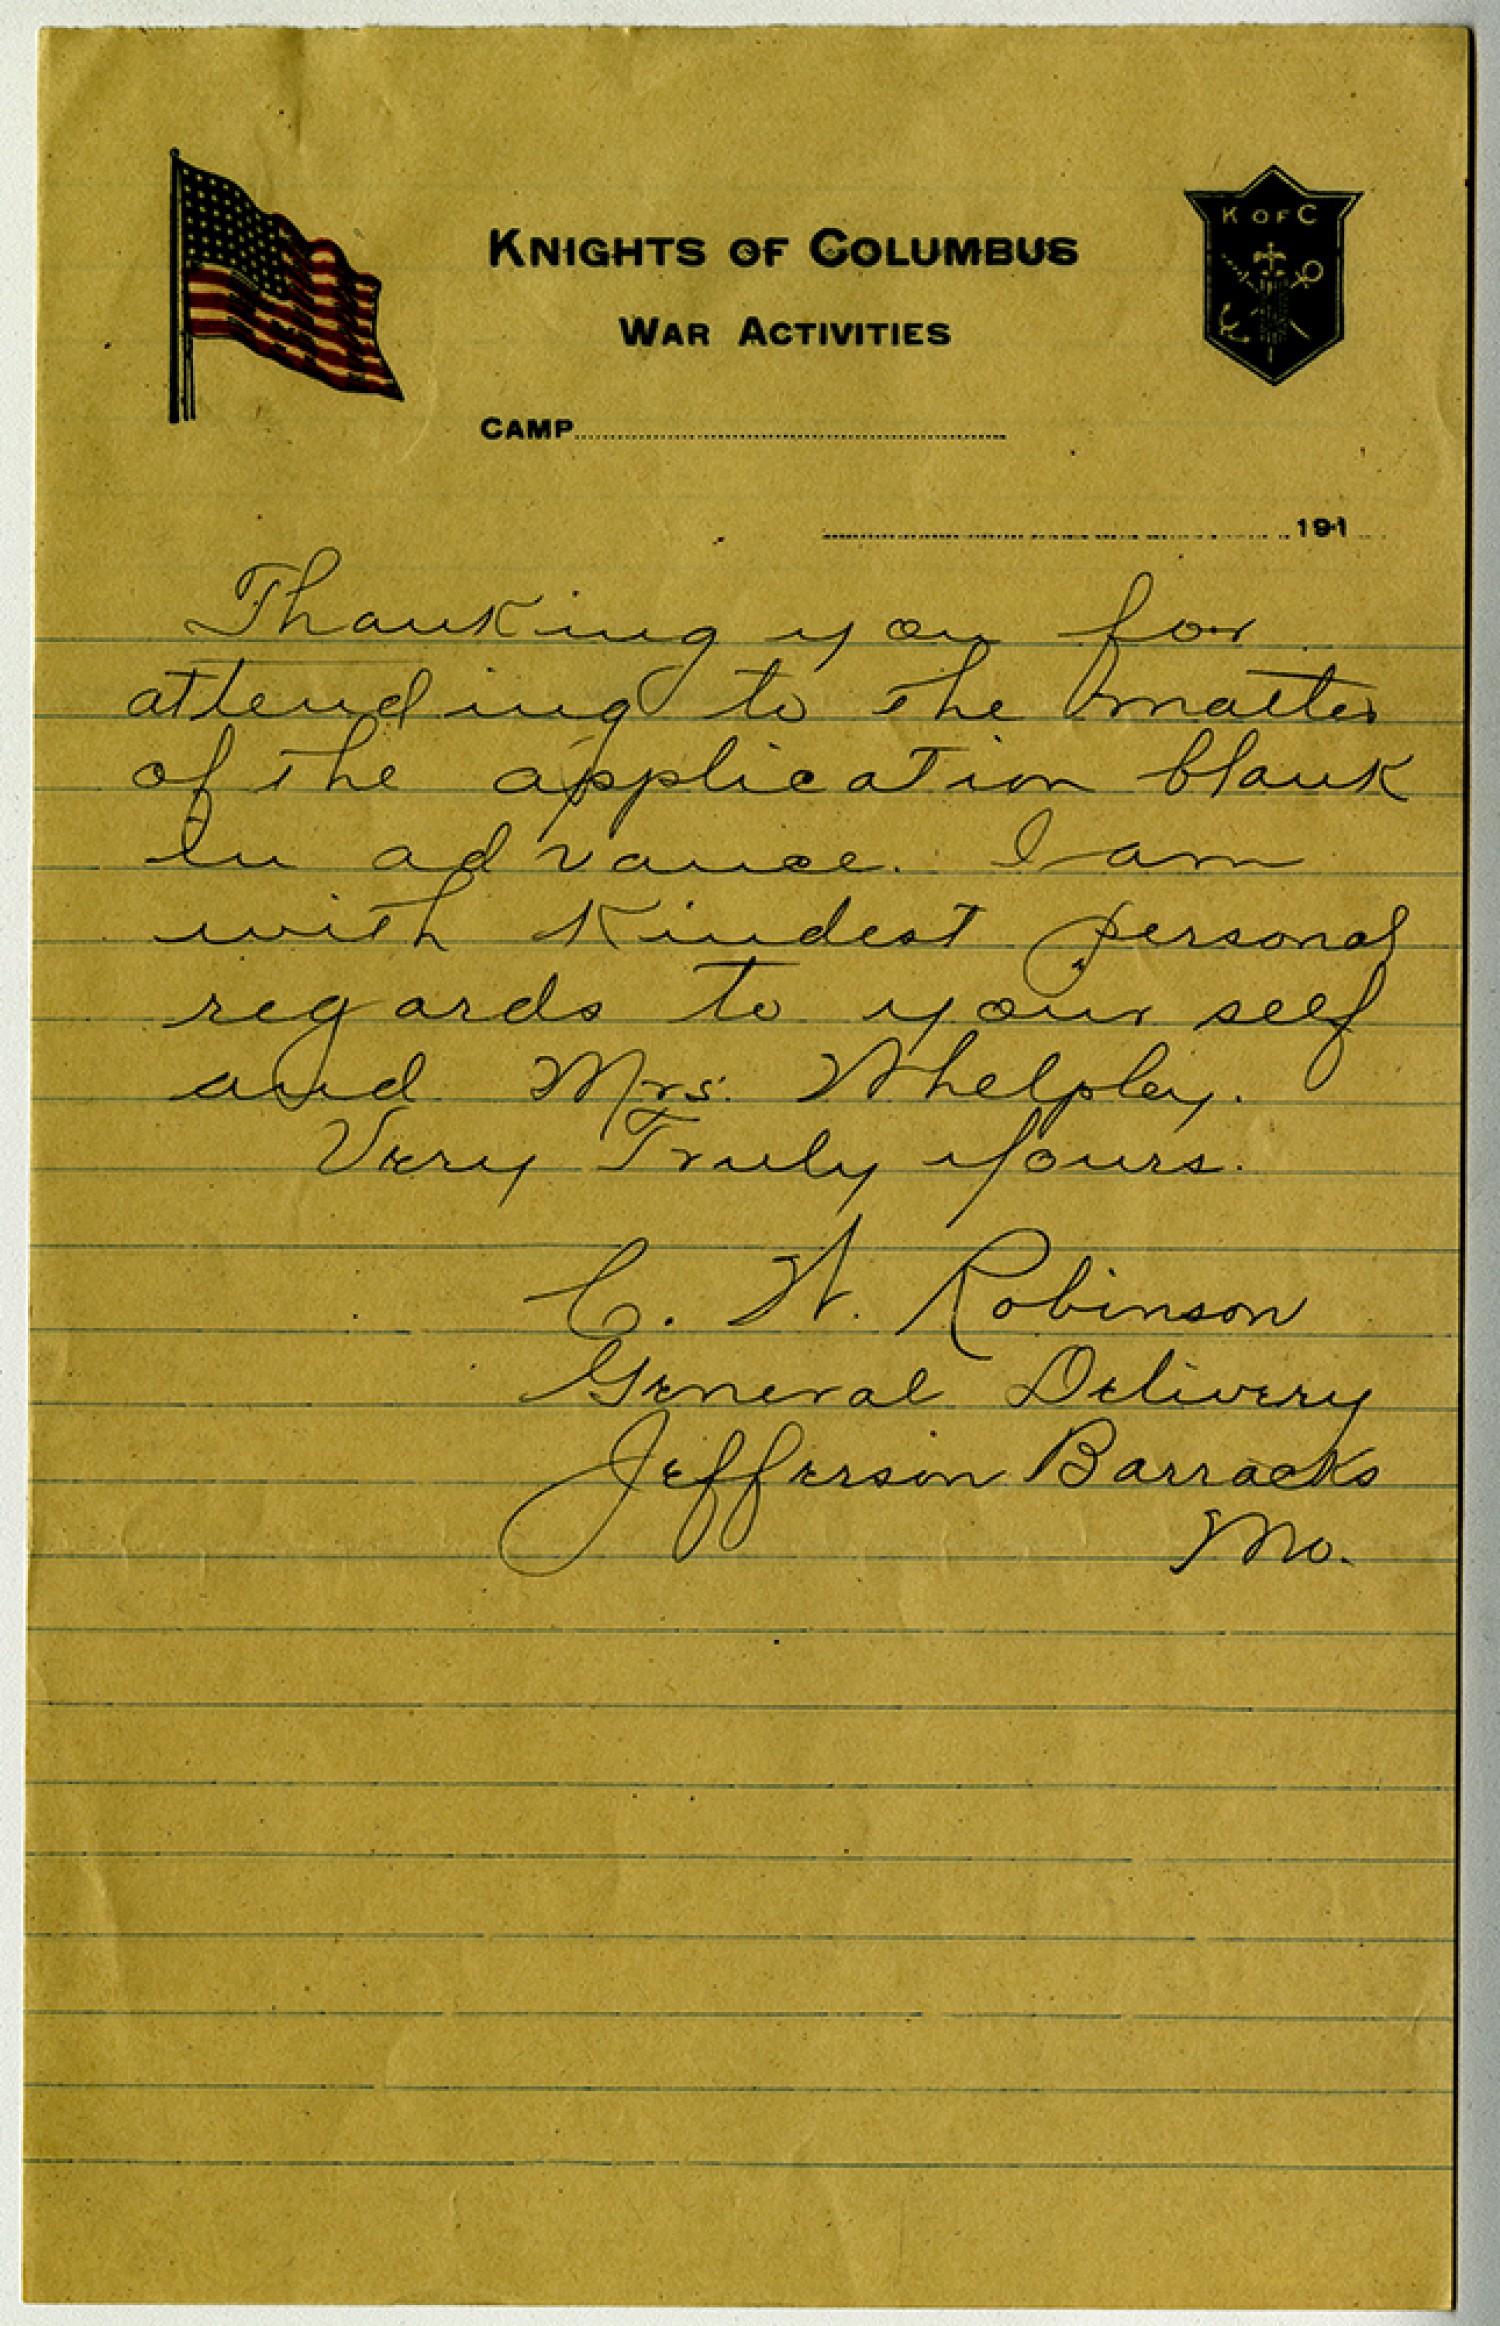 K OF C
KNIGHTS OF COLUMBUS
WAR ACTIVITIES
CAMP
191
Thanking you for
attending to the matter
of the application blank
in advance. I am
with kindest personal
regards to your self
and Mrs. Whelpley.
Very Truly Yours.
C. W. Robinson
General Delivery
Jefferson Barracks
Mo.